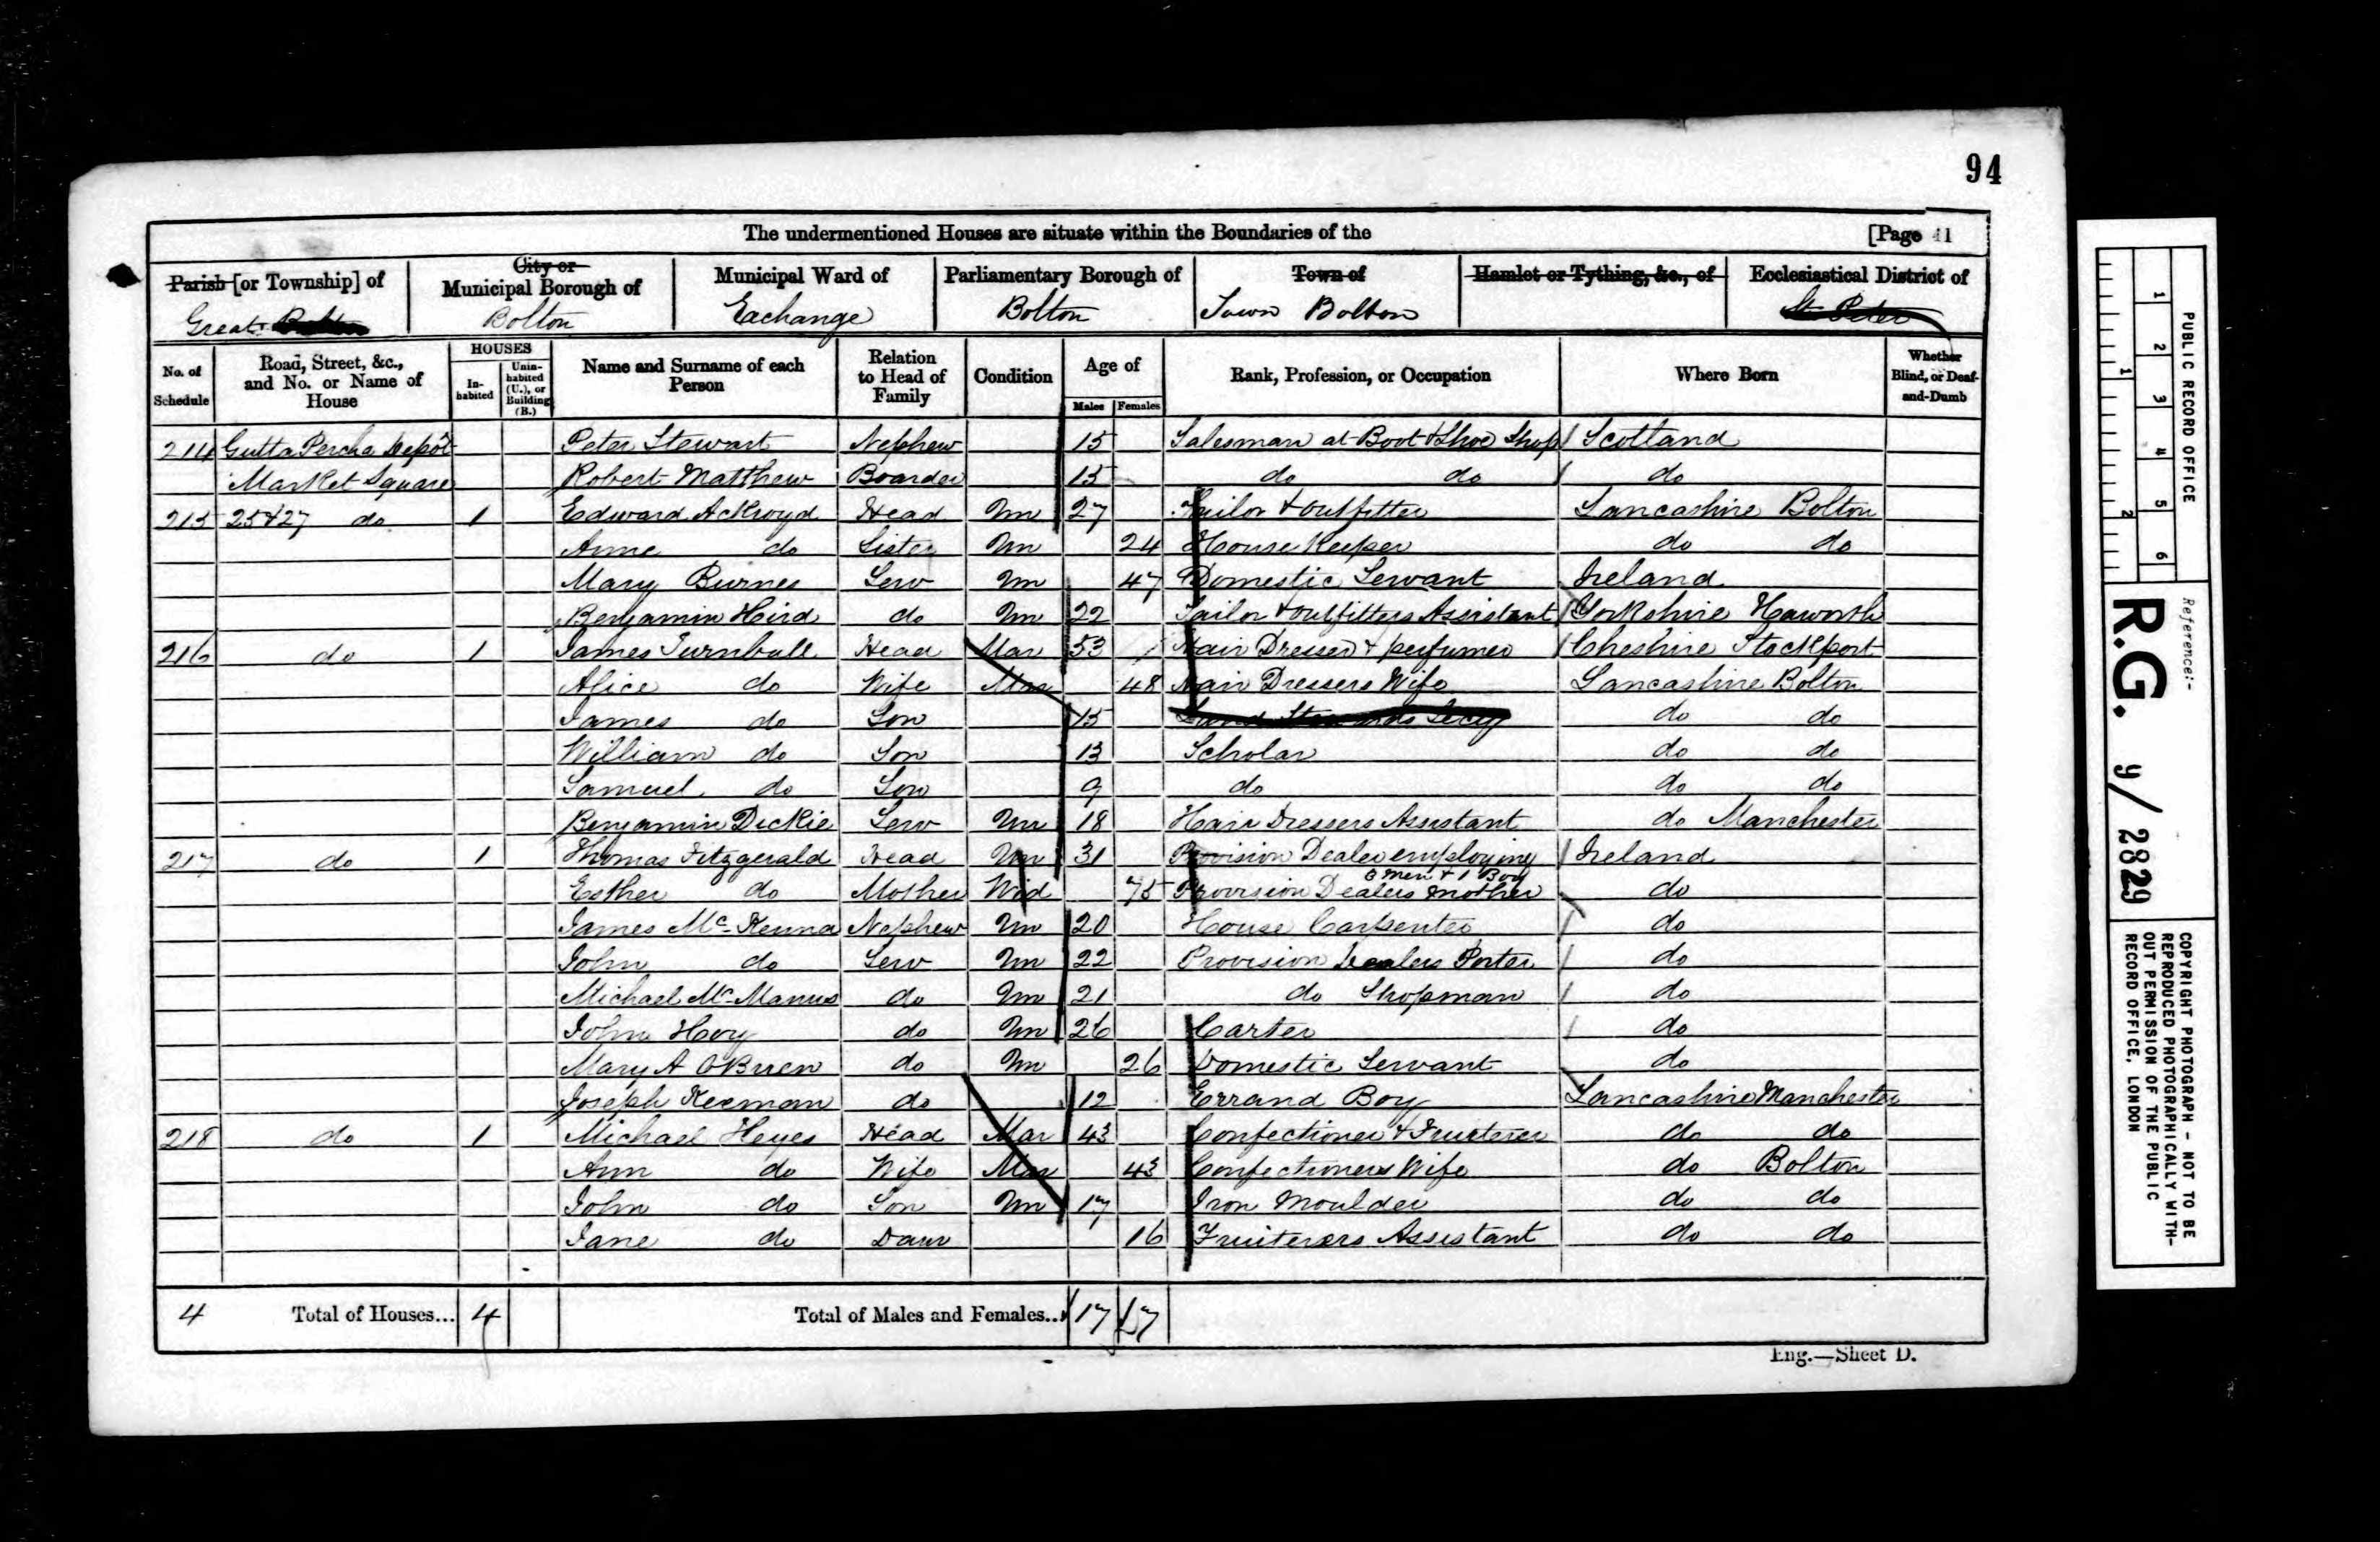 94
The undermentioned Houses are situate within the Boundaries of the [Page 41
Parish [or Township] of City or Municipal Borough of Municipal Ward of Parliamentary Borough of Town of Hamlet or Tything, &c., of Ecclesiastical District of
Great Bolton Bolton Exchange Bolton Town Bolton St. Peter
No. of Schedule Road, Street, &c., and No. or Name of House HOUSES Inhabited Uninhabited (U.), or Building (B.) Name and Surname of each Person Relation to Head of Family Condition Age of Males Females Rank, Profession, or Occupation Where Born Whether Blind, or Deaf-and-Dumb
214 Gutta Percha Depôt Peter Stewart Nephew 15 Salesman at Boot & Shoe Shop Scotland
Market Square Robert Matthew Boarder 15 do do do
215 25&27 do 1 Edward Ackroyd Head Un 27 Tailor & outfitter Lancashire Bolton
Anne do Sister Un 24 House Keeper do do
Mary Burnes Serv Un 47 Domestic Servant Ireland
Benjamin Heird do Un 22 Tailor & outfitters Assistant Yorkshire Haworth
216 do 1 James Turnbull Head Mar 53 Hair Dresser & perfumer Cheshire Stockport
Alice do Wife Mar 48 Hair Dressers Wife Lancashire Bolton
James do Son 15 do do
William do Son 13 Scholar do do
Samuel do Son 9 do do do
Benjamin Dickie Serv Un 18 Hair Dressers Assistant do Manchester
217 do 1 Thomas Fitzgerald Head Un 31 Provision Dealer employing Ireland
men & 1 Boy
Esther do Mother Wid 75 Provision Dealers mother do
James Mc Kenna Nephew Un 20 House Carpenter do
John do Serv Un 22 Provision Dealers Porter do
Michael Mc Manus do Un 21 do Shopman do
John Hoy do Un 26 Carter do
Mary A OBrien do Un 26 Domestic Servant do
Joseph Keeman do 12 Errand Boy Lancashire Manchester
218 do 1 Michael Heyes Head Mar 43 Confectioner & Fruiterer do do
Ann do Wife Mar 43 Confectioners Wife do Bolton
John do Son Un 17 Iron Moulder do do
Jane do Daur 16 Fruiterers Assistant do do
4 Total of Houses... 4 Total of Males and Females... 17 7
Eng.—Sheet D.
PUBLIC RECORD OFFICE
1 2 3 4 5 6
1 2
Reference:-
R.G. 9/2829
COPYRIGHT PHOTOGRAPH - NOT TO BE
REPRODUCED PHOTOGRAPHICALLY WITH-
OUT PERMISSION OF THE PUBLIC
RECORD OFFICE, LONDON